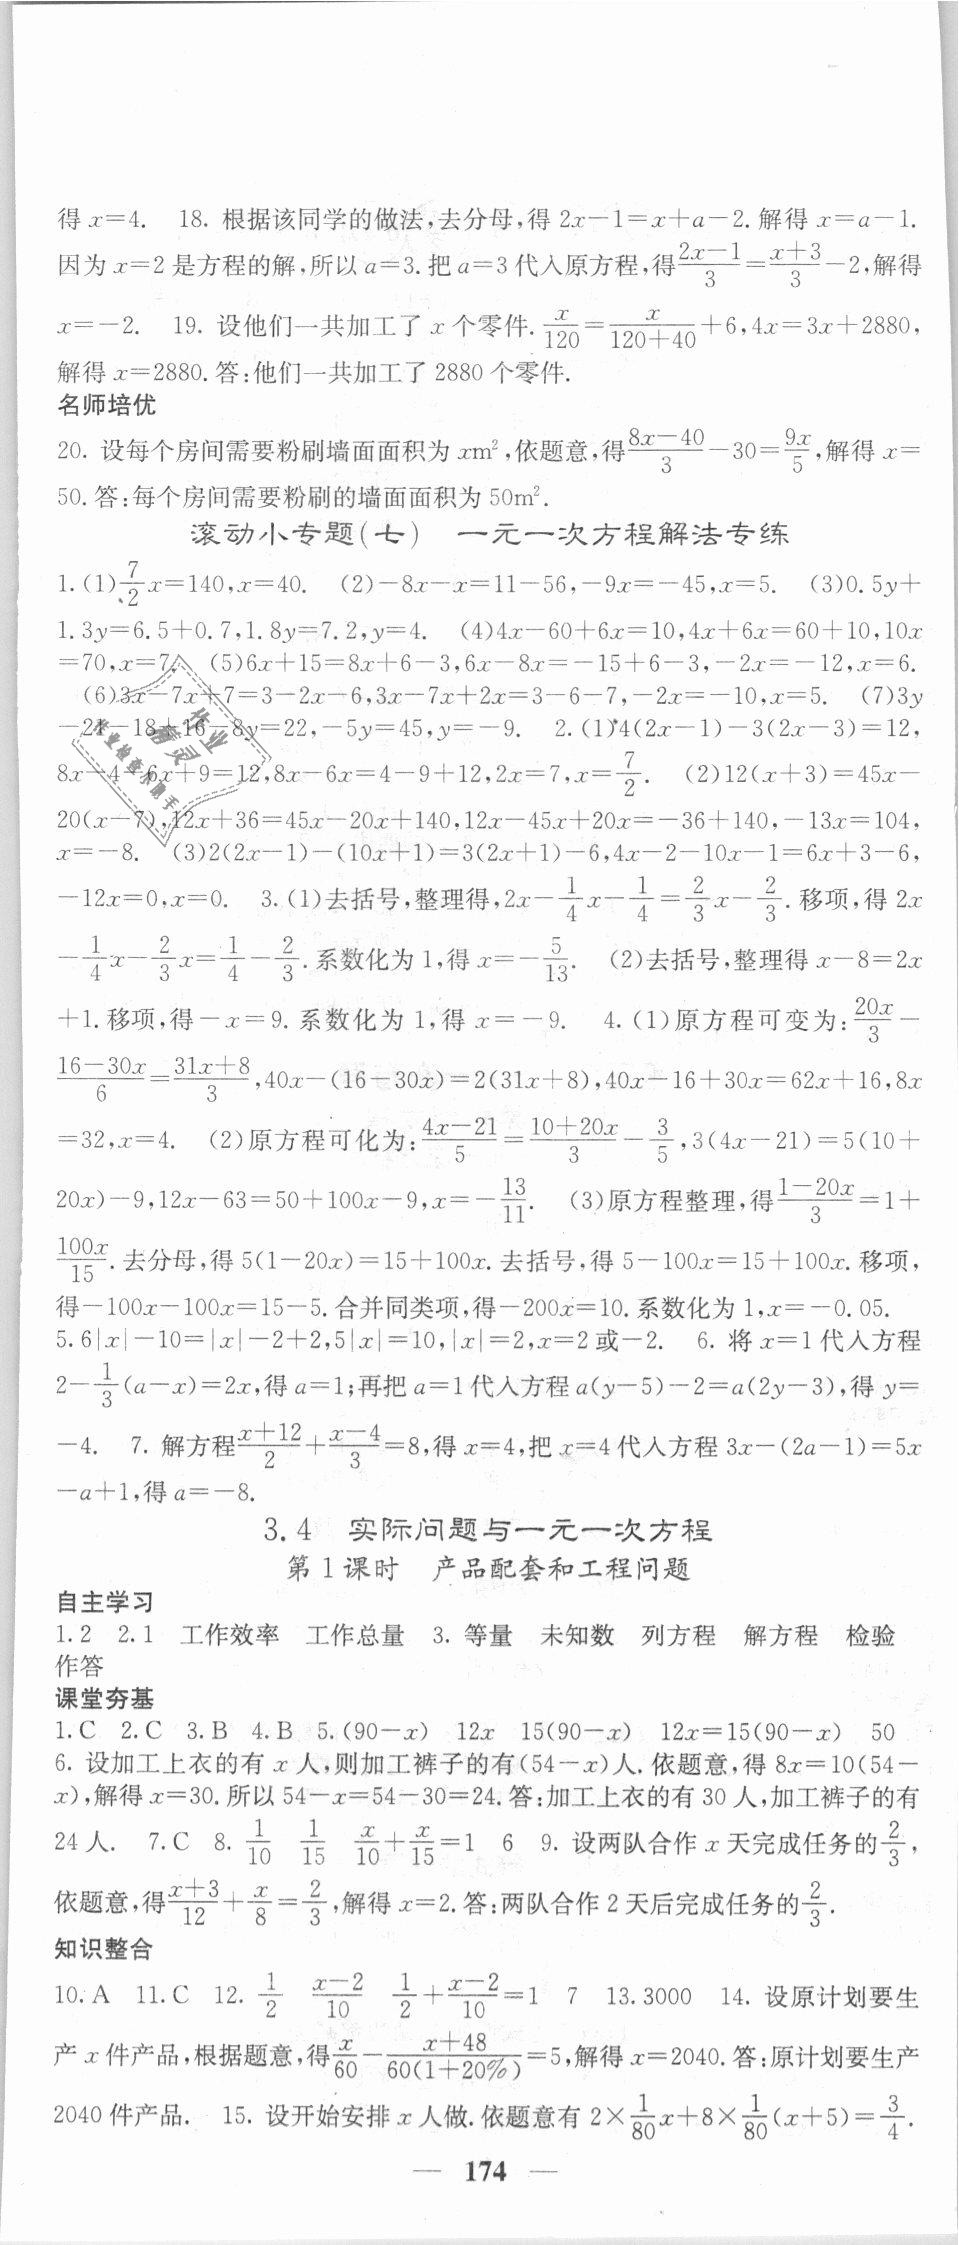 得 x=4. 18. 根据该同学的做法,去分母,得 2x-1=x+a-2. 解得 x=a-1.
因为 x=2 是方程的解,所以 a=3. 把 a=3 代入原方程,得(2x-1)/3=(x+3)/3-2,解得
x=-2. 19. 设他们一共加工了 x 个零件. x/120=x/(120+40)+6,4x=3x+2880,
解得 x=2880. 答:他们一共加工了 2880 个零件.
名师培优
20. 设每个房间需要粉刷墙面面积为 xm²,依题意,得(8x-40)/3-30=9x/5,解得 x=
50. 答:每个房间需要粉刷的墙面面积为 50m².
滚动小专题(七) 一元一次方程解法专练
1. (1)7/2x=140,x=40. (2)-8x-x=11-56,-9x=-45,x=5. (3)0.5y+
1.3y=6.5+0.7,1.8y=7.2,y=4. (4)4x-60+6x=10,4x+6x=60+10,10x
=70,x=7. (5)6x+15=8x+6-3,6x-8x=-15+6-3,-2x=-12,x=6.
(6)3x-7x+7=3-2x-6,3x-7x+2x=3-6-7,-2x=-10,x=5. (7)3y
-21-18+16-8y=22,-5y=45,y=-9. 2. (1)4(2x-1)-3(2x-3)=12,
8x-4-6x+9=12,8x-6x=4-9+12,2x=7,x=7/2. (2)12(x+3)=45x-
20(x-7),12x+36=45x-20x+140,12x-45x+20x=-36+140,-13x=104,
x=-8. (3)2(2x-1)-(10x+1)=3(2x+1)-6,4x-2-10x-1=6x+3-6,
-12x=0,x=0. 3. (1)去括号,整理得,2x-1/4x-1/4=2/3x-2/3. 移项,得 2x
-1/4x-2/3x=1/4-2/3. 系数化为 1,得 x=-5/13. (2)去括号,整理得 x-8=2x
+1. 移项,得-x=9. 系数化为 1,得 x=-9. 4. (1)原方程可变为:20x/3-
(16-30x)/6=(31x+8)/3,40x-(16-30x)=2(31x+8),40x-16+30x=62x+16,8x
=32,x=4. (2)原方程可化为:(4x-21)/5=(10+20x)/3-3/5,3(4x-21)=5(10+
20x)-9,12x-63=50+100x-9,x=-13/11. (3)原方程整理,得(1-20x)/3=1+
100x/15. 去分母,得 5(1-20x)=15+100x. 去括号,得 5-100x=15+100x. 移项,
得-100x-100x=15-5. 合并同类项,得-200x=10. 系数化为 1,x=-0.05.
5. 6|x|-10=|x|-2+2,5|x|=10,|x|=2,x=2 或-2. 6. 将 x=1 代入方程
2-1/3(a-x)=2x,得 a=1;再把 a=1 代入方程 a(y-5)-2=a(2y-3),得 y=
-4. 7. 解方程(x+12)/2+(x-4)/3=8,得 x=4,把 x=4 代入方程 3x-(2a-1)=5x
-a+1,得 a=-8.
3.4 实际问题与一元一次方程
第 1 课时 产品配套和工程问题
自主学习
1. 2 2. 1 工作效率 工作总量 3. 等量 未知数 列方程 解方程 检验
作答
课堂夯基
1. C 2. C 3. B 4. B 5. (90-x) 12x 15(90-x) 12x=15(90-x) 50
6. 设加工上衣的有 x 人,则加工裤子的有(54-x)人. 依题意,得 8x=10(54-
x),解得 x=30. 所以 54-x=54-30=24. 答:加工上衣的有 30 人,加工裤子的有
24 人. 7. C 8. 1/10 1/15 x/10+x/15=1 6 9. 设两队合作 x 天完成任务的2/3,
依题意,得(x+3)/12+x/8=2/3,解得 x=2. 答:两队合作 2 天后完成任务的2/3.
知识整合
10. A 11. C 12. 1/2 (x-2)/10 1/2+(x-2)/10=1 7 13. 3000 14. 设原计划要生
产 x 件产品,根据题意,得x/60-(x+48)/(60(1+20%))=5,解得 x=2040. 答:原计划要生产
2040 件产品. 15. 设开始安排 x 人做. 依题意有 2×1/80x+8×1/80(x+5)=3/4.
— 174 —
作业
精灵
作业检查小助手